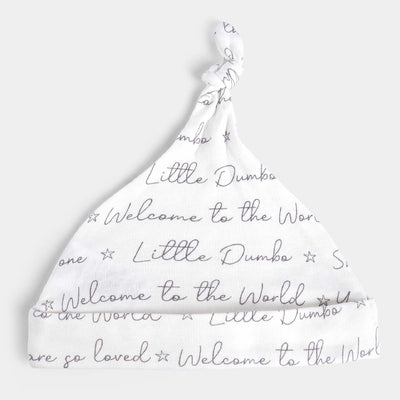 to the
Dumbo ☆
Little Dumbo
☆ Welcome to the Worl
one ☆ Little Dumbo ☆ S
Welcome to the World ☆
to the World ☆ Little Dumbo ☆
are so loved ☆ Welcome to the World